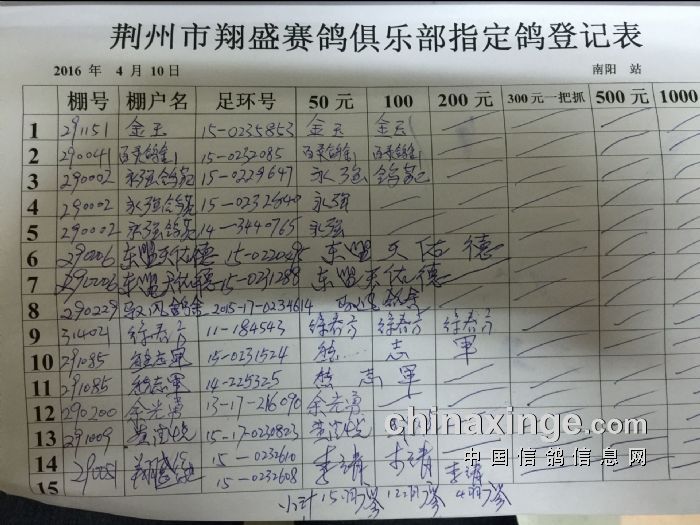 荆州市翔盛赛鸽俱乐部指定鸽登记表
2016 年 4 月 10 日 南阳 站
棚号 棚户名 足环号 50 元 100 200 元 300 元一把抓 500 元 1000
1 291151 金玉 15-0235853 金玉 金玉
2 290041 15-0232085
3 290002 永强鸽苑 15-0229647 永强 鸽苑
4 290002 永强鸽苑 15-0232640 永强
5 290002 永强鸽苑 14-3440765 永强
6 290006 东盟天佑德 东盟天佑德
7 290006 东盟天佑德 15-0231288 东盟天佑德
8 290229 鸽舍 2015-17-0234614 鸽舍
9 314021 徐春方 11-184543 徐春方 徐春方 徐春方
10 291085 熊志軍 15-0231524 熊 志 軍
11 291085 熊志軍 14-225325 熊 志 軍
12 290200 余光勇 13-17-216090 余光勇
13 291009 15-17-0230823
14 290051 15-0232610
15 15-0232608
小计 15羽 12羽 4羽
chinaxinge.com
中国信鸽信息网